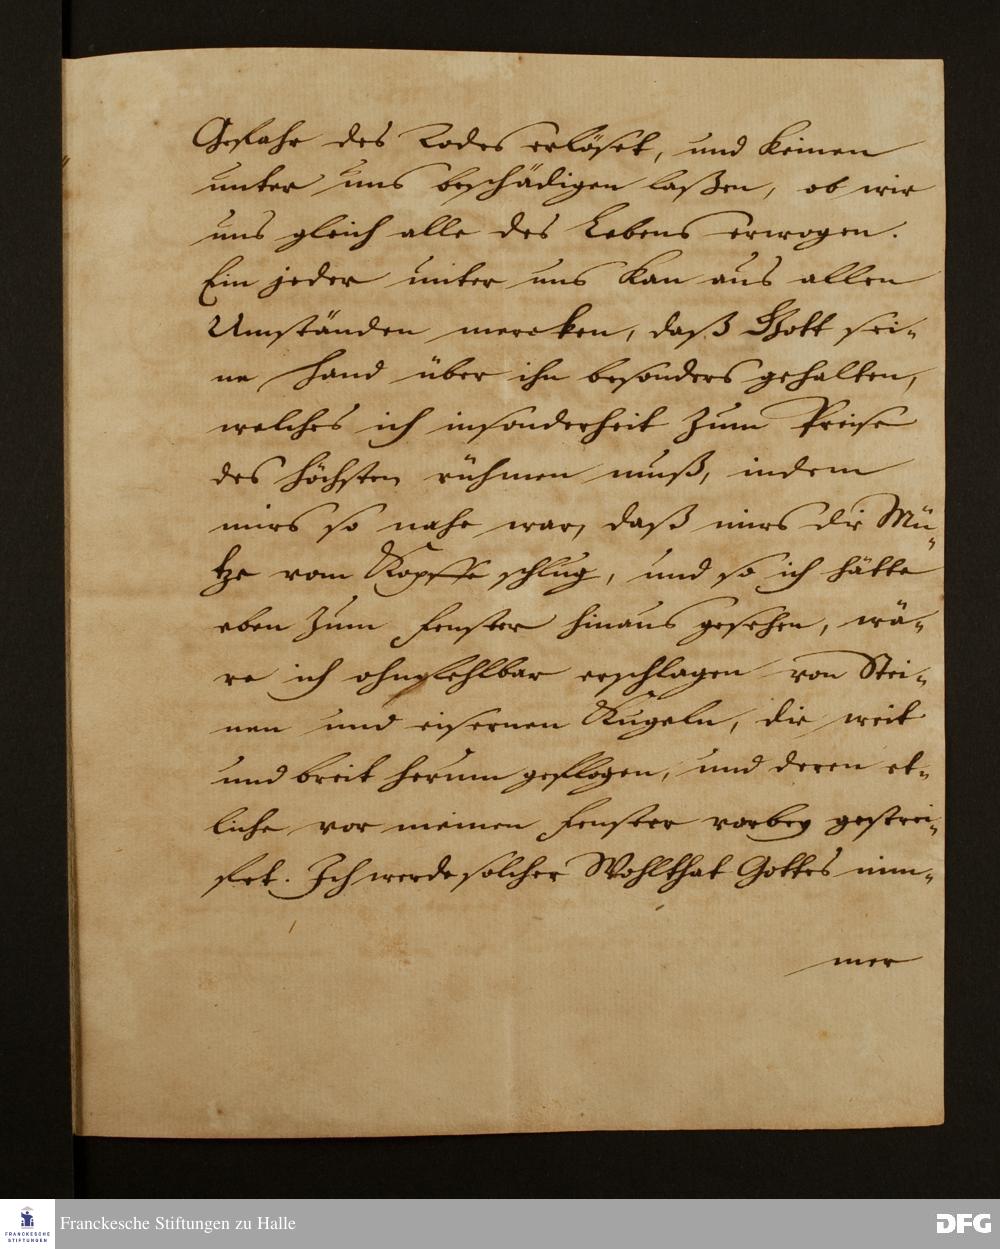 Gefahr des Todes erlöset, und keinen
unter uns beschädigen laßen, ob wir
uns gleich alle des Lebens erwogen.
Ein jeder unter uns kan aus allen
Umständen mercken, daß Gott sei-
ne Hand über ihn besonders gehalten,
welches ich insonderheit zum Preise
des Höchsten rühmen muß, indem
mirs so nahe war, daß mirs die Mü-
tze vom Kopffe schlug, und so ich hätte
eben zum Fenster hinaus gesehen, wä-
re ich ohnfehlbar erschlagen von Stei-
nen und eisernen Kugeln, die weit
und breit herum geflogen, und deren et-
liche vor meinen Fenster vorbey gestrei-
fet. Ich werde solcher Wohlthat Gottes nim-
mer
FRANCKESCHE
STIFTUNGEN
Franckesche Stiftungen zu Halle
DFG